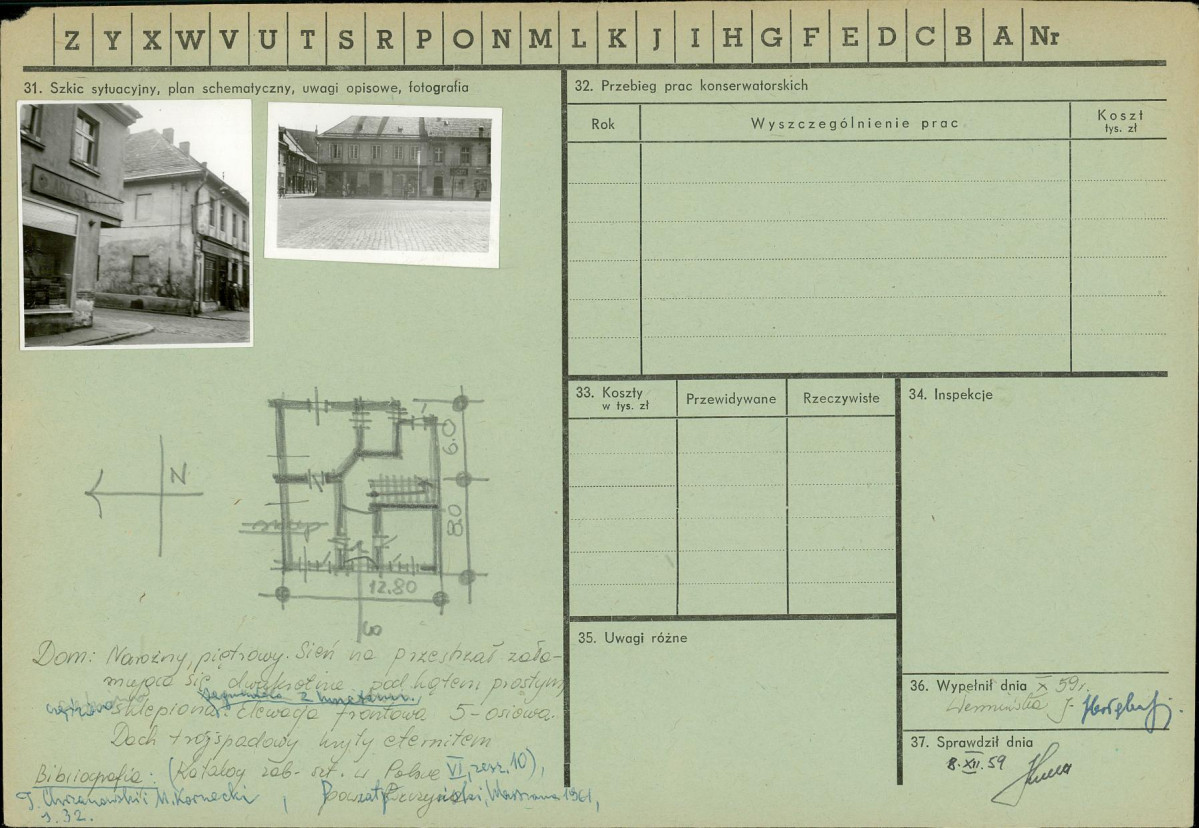 Z Y X W V U T S R P O N M L K J I H G F E D C B A Nr
31. Szkic sytuacyjny, plan schematyczny, uwagi opisowe, fotografia
N
6.0
8.0
12.80
Dom: Narożny, piętrowy. Sień na przestrzał zała-
mująca się dwukrotnie pod kątem prostym,
częściowo sklepiona. z lunetami. Elewacja frontowa 5-osiowa.
Dach trójspadowy kryty eternitem
Bibliografia: (Katalog zab. szt. w Polsce VI, zesz. 10),
T. Chrzanowski i M. Kornecki, powiat Warszawa 1961,
s. 32.
32. Przebieg prac konserwatorskich
Rok
Wyszczególnienie prac
Koszt
tys. zł
33. Koszty
w tys. zł
Przewidywane
Rzeczywiste
34. Inspekcje
35. Uwagi różne
36. Wypełnił dnia X 59r.
37. Sprawdził dnia
8.XII.59